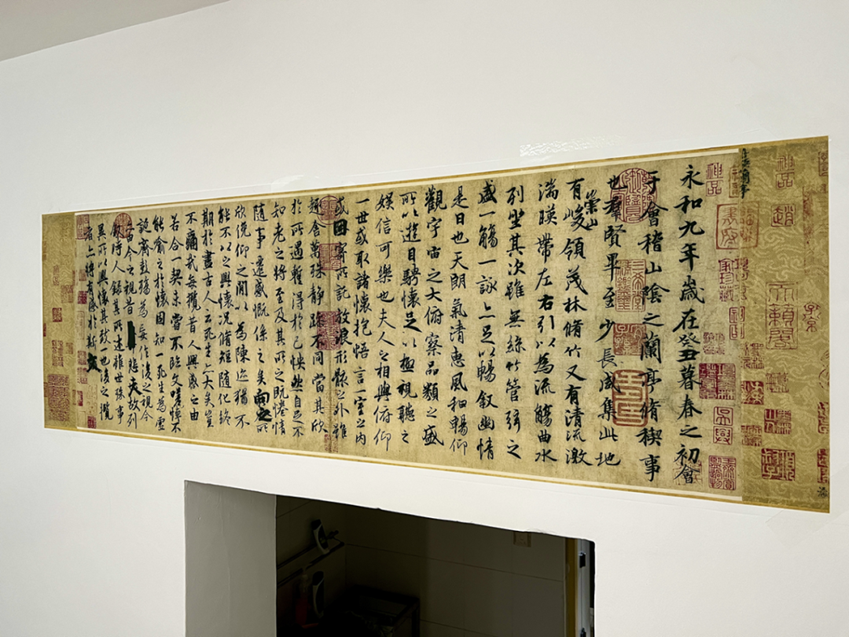 永和九年歲在癸丑暮春之初會
于會稽山陰之蘭亭脩稧事
也羣賢畢至少長咸集此地
有崇山峻領茂林脩竹又有清流激
湍暎帶左右引以為流觴曲水
列坐其次雖無絲竹管弦之
盛一觴一詠亦足以暢叙幽情
是日也天朗氣清惠風和暢仰
觀宇宙之大俯察品類之盛
所以遊目騁懷足以極視聽之
娛信可樂也夫人之相與俯仰
一世或取諸懷抱悟言一室之內
或因寄所託放浪形骸之外雖
趣舍萬殊靜躁不同當其欣
於所遇暫得於己怏然自足不
知老之將至及其所之既惓情
隨事遷感慨係之矣向之所
欣俛仰之間以為陳迹猶不
能不以之興懷況脩短隨化終
期於盡古人云死生亦大矣豈
不痛哉每攬昔人興感之由
若合一契未嘗不臨文嗟悼不
能喻之於懷固知一死生為虛
誕齊彭殤為妄作後之視今
亦由今之視昔悲夫故列
敘時人錄其所述雖世殊事
異所以興懷其致一也後之攬
者亦將有感於斯文